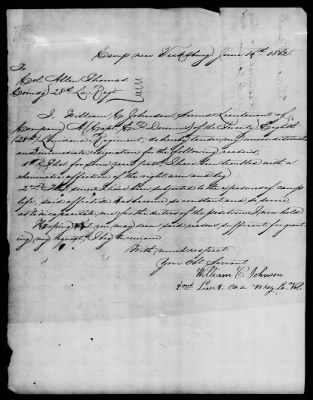 Camp near Vicksburg June 14th 1862
To
Col. Allen Thomas
Comdg 28th La Regt
I, William C. Johnson Second Lieutenant of
Company A (Capt. ) of the Twenty Eighth
(28th) Louisiana Regiment, do hereby tender my unconditional
and immediate resignation for the following reasons
1st That for some years past I have been troubled with a
rheumatic affection of the right arm and leg
2nd That since I have been subjected to the exposures of camp
life, said affection has become so constant and so severe
as to incapacitate me for the duties of the position I now hold
Hoping that you may deem said reasons sufficient for grant
ing my request, I beg to remain
With much respect
Your Obt Servant
William C. Johnson
2nd Lieut. Co A 28 Reg La. Vol.